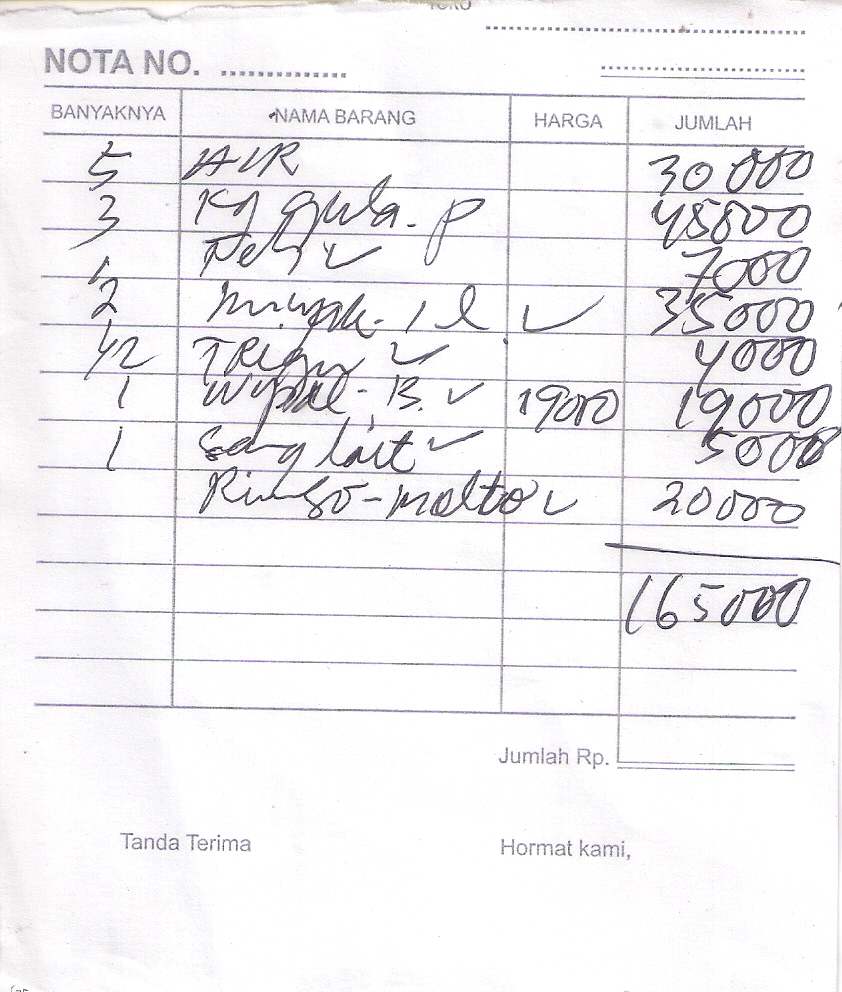 NOTA NO. ..............
BANYAKNYA NAMA BARANG HARGA JUMLAH
5 AIR 30000
3 Kg gula. P 45000
1 7000
2 Minyak - 1 l ✓ 35000
1/2 TRigu ✓ 4000
1 B. ✓ 19000 19000
1 ✓ 5000
Rinso - molto ✓ 20000
165000
Jumlah Rp.
Tanda Terima Hormat kami,